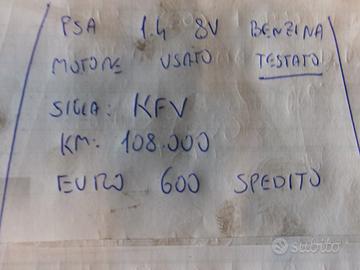 PSA 1.4 8V BENZINA
MOTORE USATO TESTATO
SIGLA: KFV
KM: 108.000
EURO 600 SPEDITO
subito